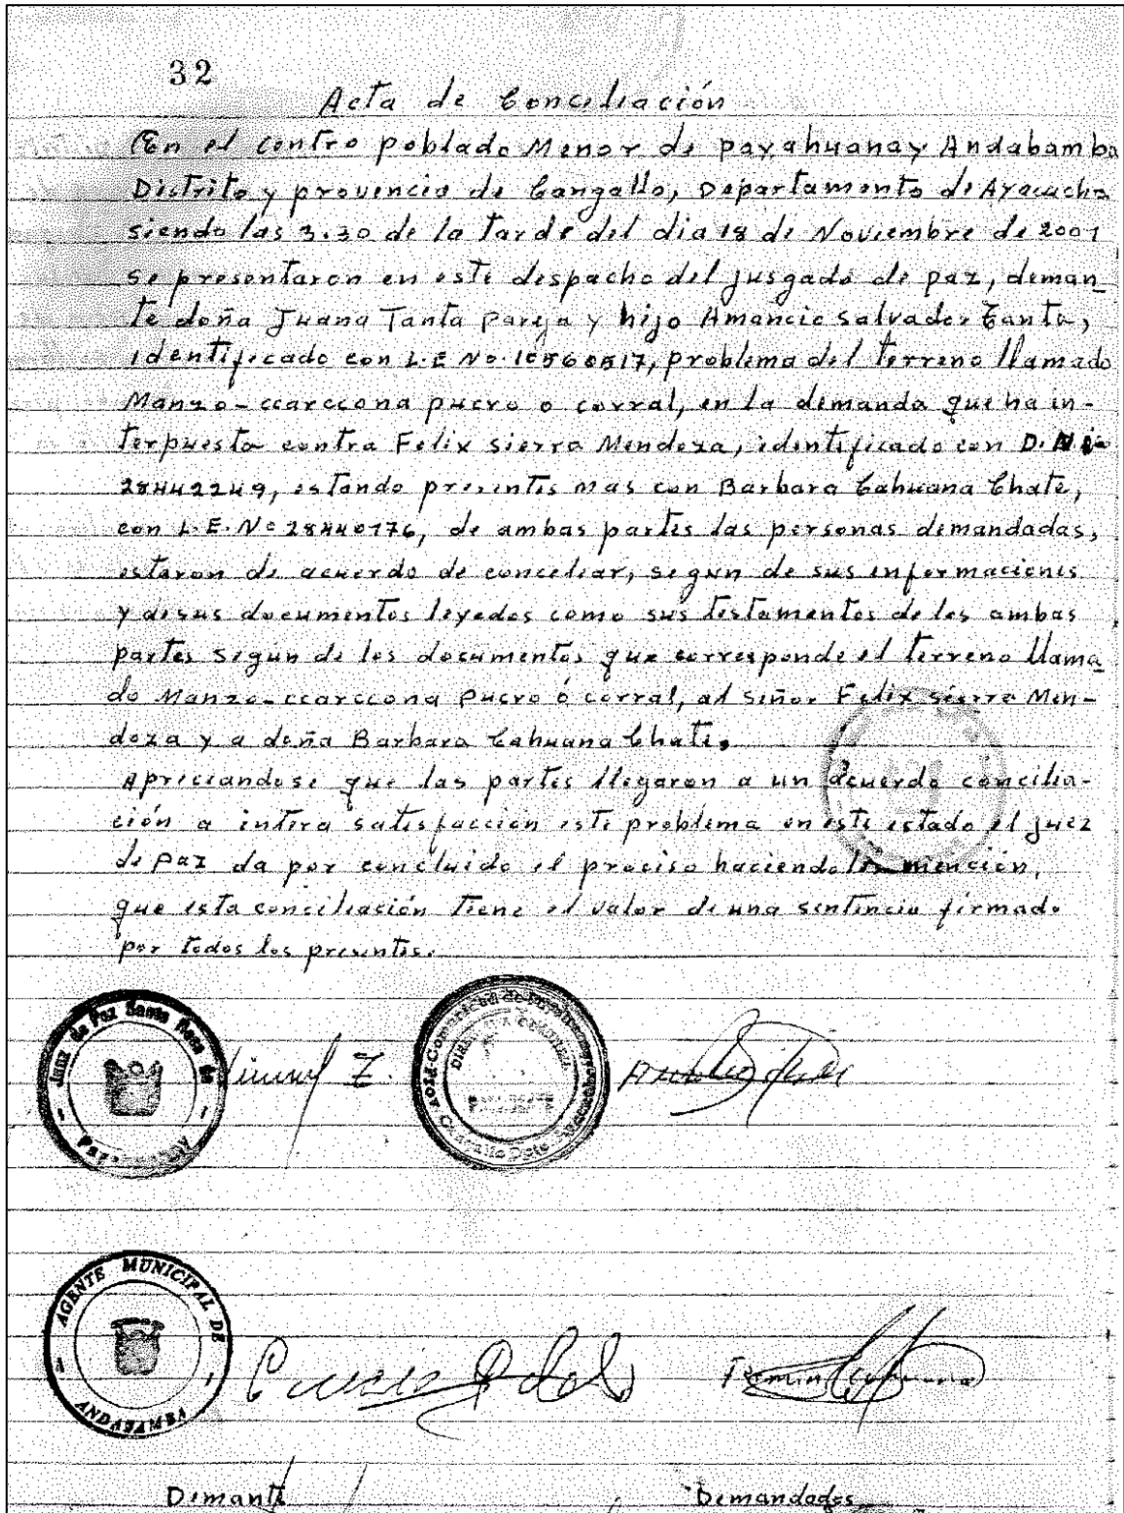 32
Acta de Conciliación
En el centro poblado Menor de payahuanay Andabamba
Distrito y provincia de Cangallo, Departamento de Ayacucho
siendo las 3.30 de la tarde del dia 18 de Noviembre de 2001
se presentaron en este despacho del jusgado de paz, deman_
te doña Juana Tanta pareja y hijo Amancio Salvador Tanta,
identificado con L.E No. 10560517, problema del terreno llamado
Manzo-ccarccona pucro o corral, en la demanda que ha in-
terpuesta contra Felix sierra Mendoza, identificado con D.N.I
28442249, estando presentes mas con Barbara Cahuana Chate,
con L.E. Nº 28440776, de ambas partes las personas demandadas,
estaron de acuerdo de conceliar, segun de sus informaciones
y de sus documentos leyedos como sus testamentos de los ambas
partes segun de los documentos que corresponde el terreno llama_
do Manzo-ccarccona pucro ó corral, al señor Felix sierra Men-
doza y a doña Barbara Cahuana Chate.
Apreciandose que las partes llegaron a un acuerdo concilia-
ción a intera satisfacción este problema en este estado el juez
de paz da por concluido el proceso haciendoles mención,
que esta conciliación tiene el valor de una sentencia firmado
por todos los presentes.
Juez de Paz Santa Rosa de
AGENTE MUNICIPAL DE
ANDABAMBA
Demante
Demandados